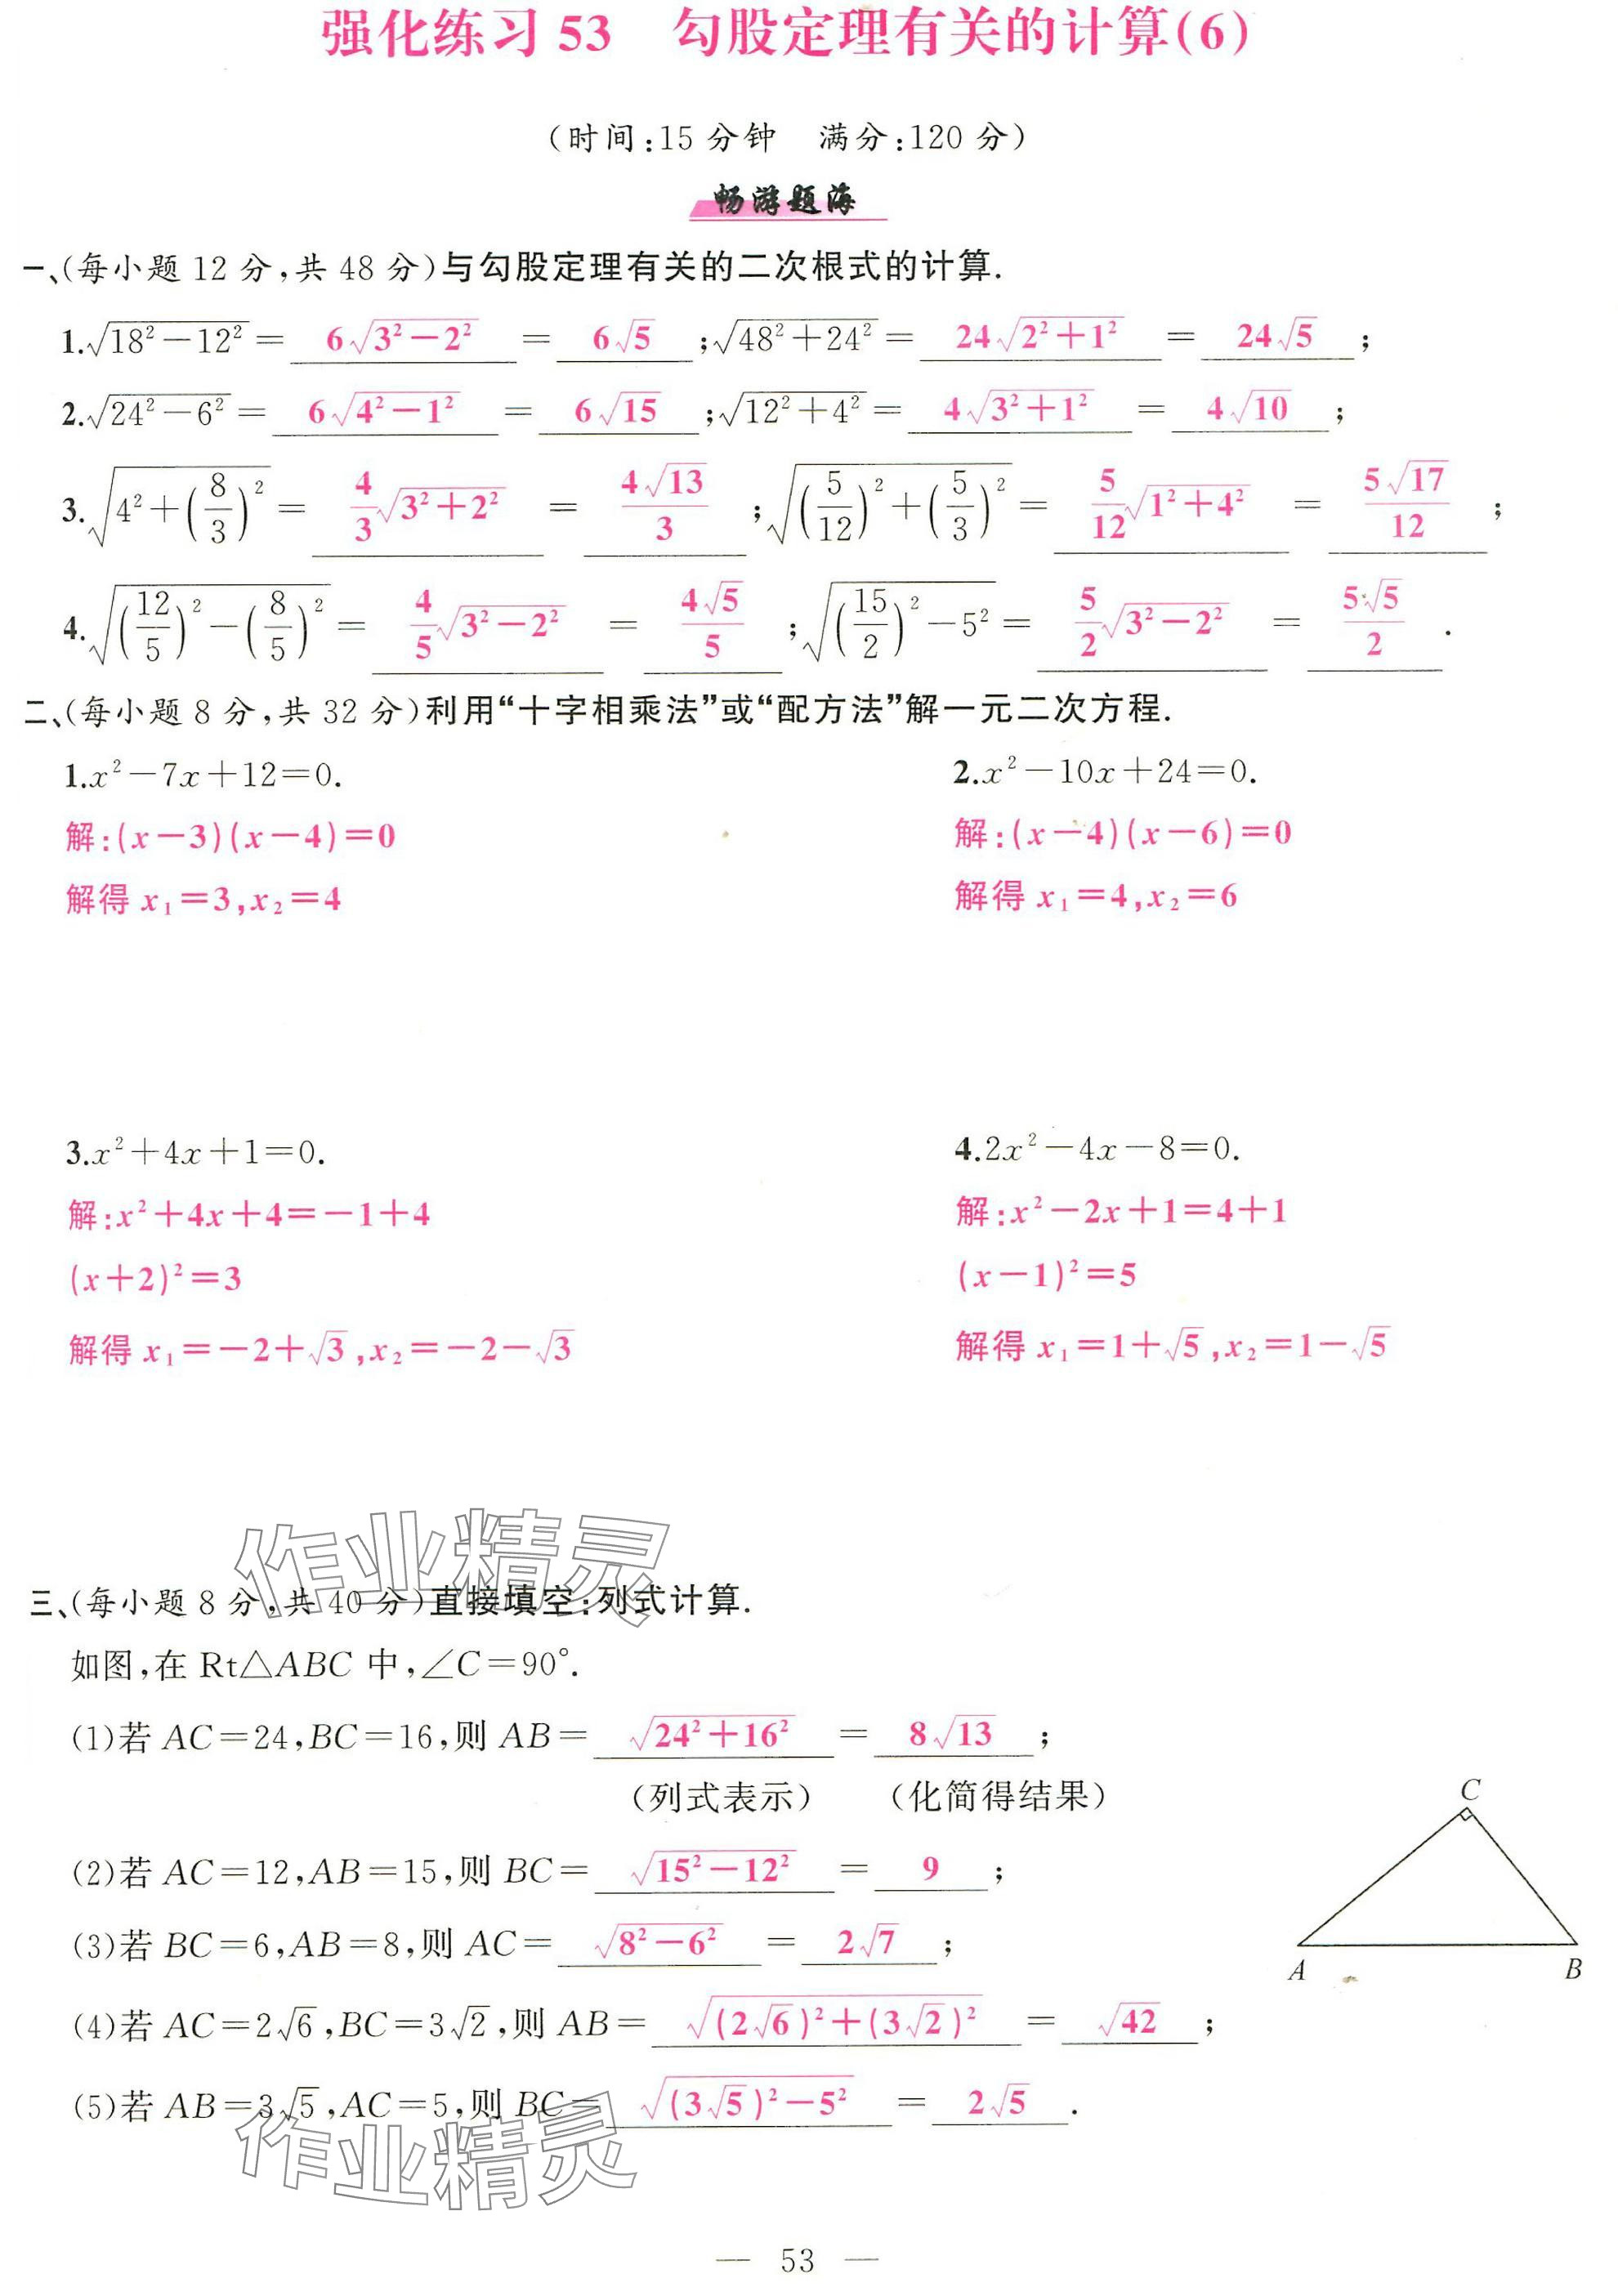 强化练习 53　勾股定理有关的计算(6)
(时间:15 分钟　满分:120 分)
畅游题海
一、(每小题 12 分,共 48 分)与勾股定理有关的二次根式的计算.
1.√(18²−12²)= 6√(3²−2²) = 6√5 ;√(48²+24²)= 24√(2²+1²) = 24√5 ;
2.√(24²−6²)= 6√(4²−1²) = 6√15 ;√(12²+4²)= 4√(3²+1²) = 4√10 ;
3.√(4²+(8/3)²)= 4/3√(3²+2²) = 4√13/3 ;√((5/12)²+(5/3)²)= 5/12√(1²+4²) = 5√17/12 ;
4.√((12/5)²−(8/5)²)= 4/5√(3²−2²) = 4√5/5 ;√((15/2)²−5²)= 5/2√(3²−2²) = 5√5/2 .
二、(每小题 8 分,共 32 分)利用“十字相乘法”或“配方法”解一元二次方程.
1.x²−7x+12=0.　2.x²−10x+24=0.
解:(x−3)(x−4)=0　解:(x−4)(x−6)=0
解得 x₁=3,x₂=4　解得 x₁=4,x₂=6
3.x²+4x+1=0.　4.2x²−4x−8=0.
解:x²+4x+4=−1+4　解:x²−2x+1=4+1
(x+2)²=3　(x−1)²=5
解得 x₁=−2+√3,x₂=−2−√3　解得 x₁=1+√5,x₂=1−√5
作业精灵
三、(每小题 8 分,共 40 分)直接填空:列式计算.
如图,在 Rt△ABC 中,∠C=90°.
(1)若 AC=24,BC=16,则 AB= √(24²+16²) = 8√13 ;
(列式表示)　(化简得结果)
(2)若 AC=12,AB=15,则 BC= √(15²−12²) = 9 ;
(3)若 BC=6,AB=8,则 AC= √(8²−6²) = 2√7 ;
(4)若 AC=2√6,BC=3√2,则 AB= √((2√6)²+(3√2)²) = √42 ;
(5)若 AB=3√5,AC=5,则 BC= √((3√5)²−5²) = 2√5 .
C
A　B
作业精灵
— 53 —